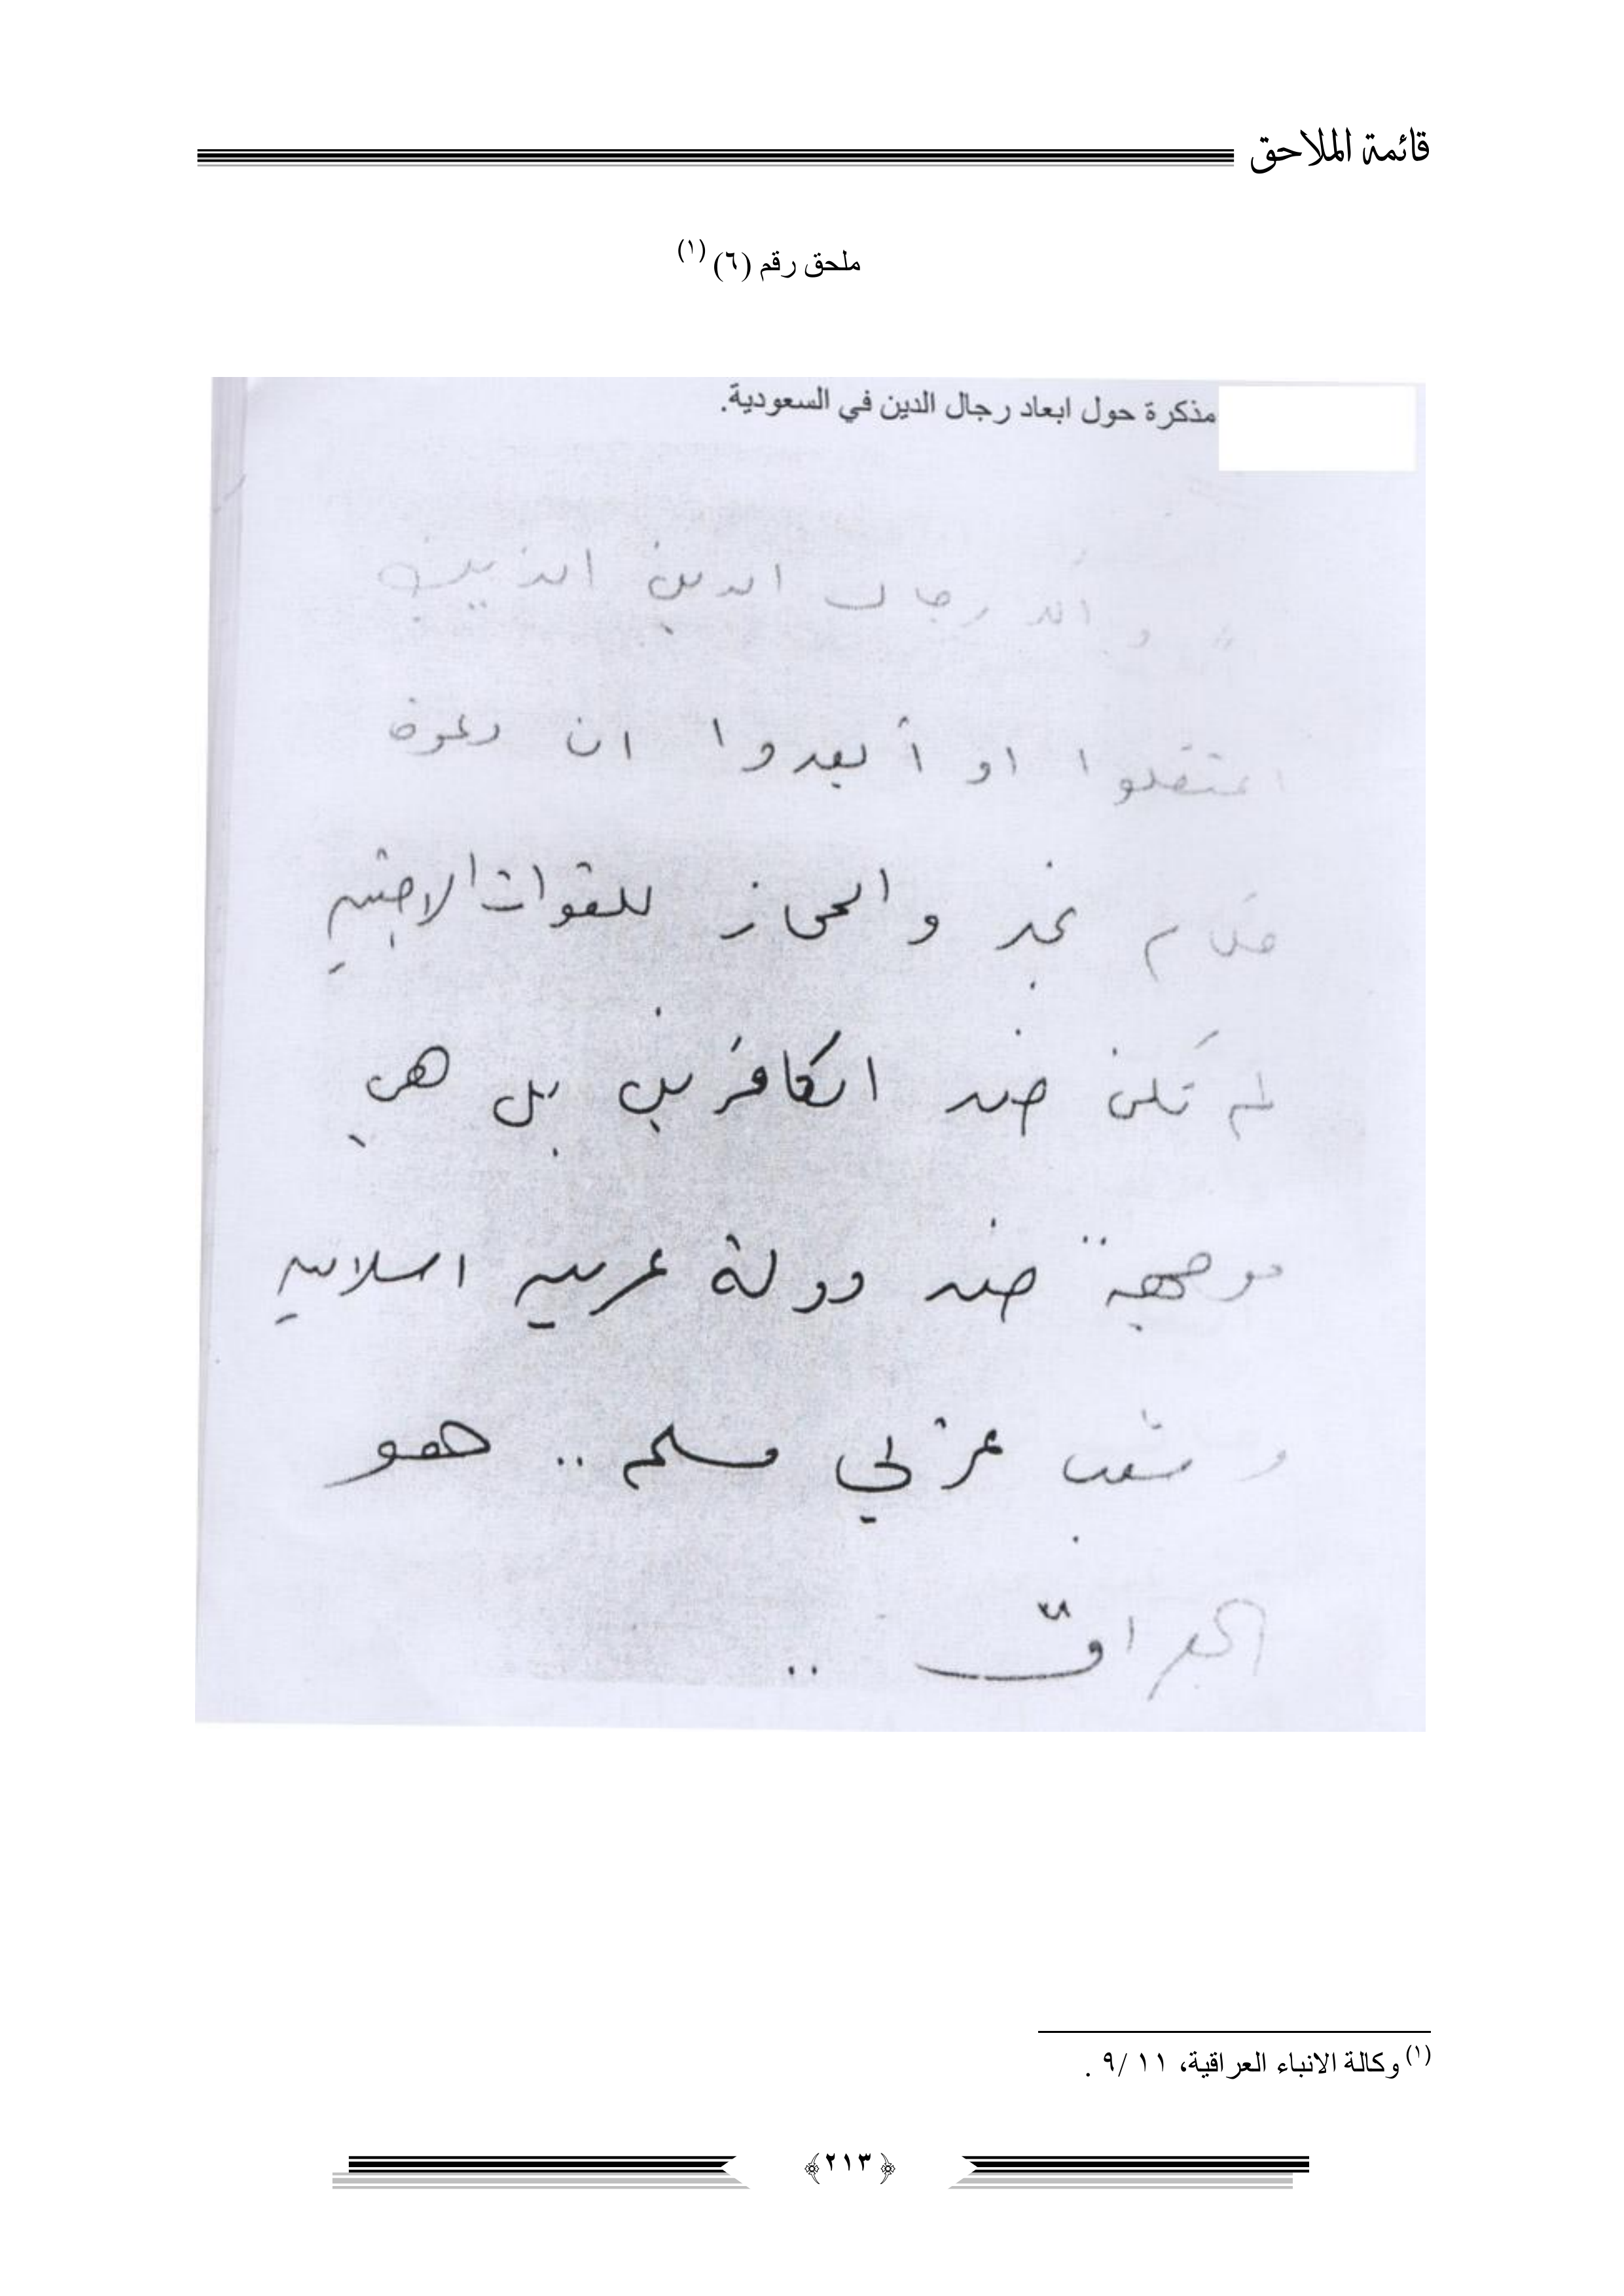 قائمة الملاحق
ملحق رقم (٦) (١)
مذكرة حول ابعاد رجال الدين في السعودية.
" و أكد رجال الدين الذين
اعتقلوا او أبعدوا ان دعوة
حكام نجد والحجاز للقوات الاجنبية
لم تكن ضد الكافرين بل هي
موجهة ضد دولة عربية اسلامية
وشعب عربي مسلم .. هو
العراق ..
(١) وكالة الانباء العراقية، ١١ /٩ .
﴿٢١٣﴾